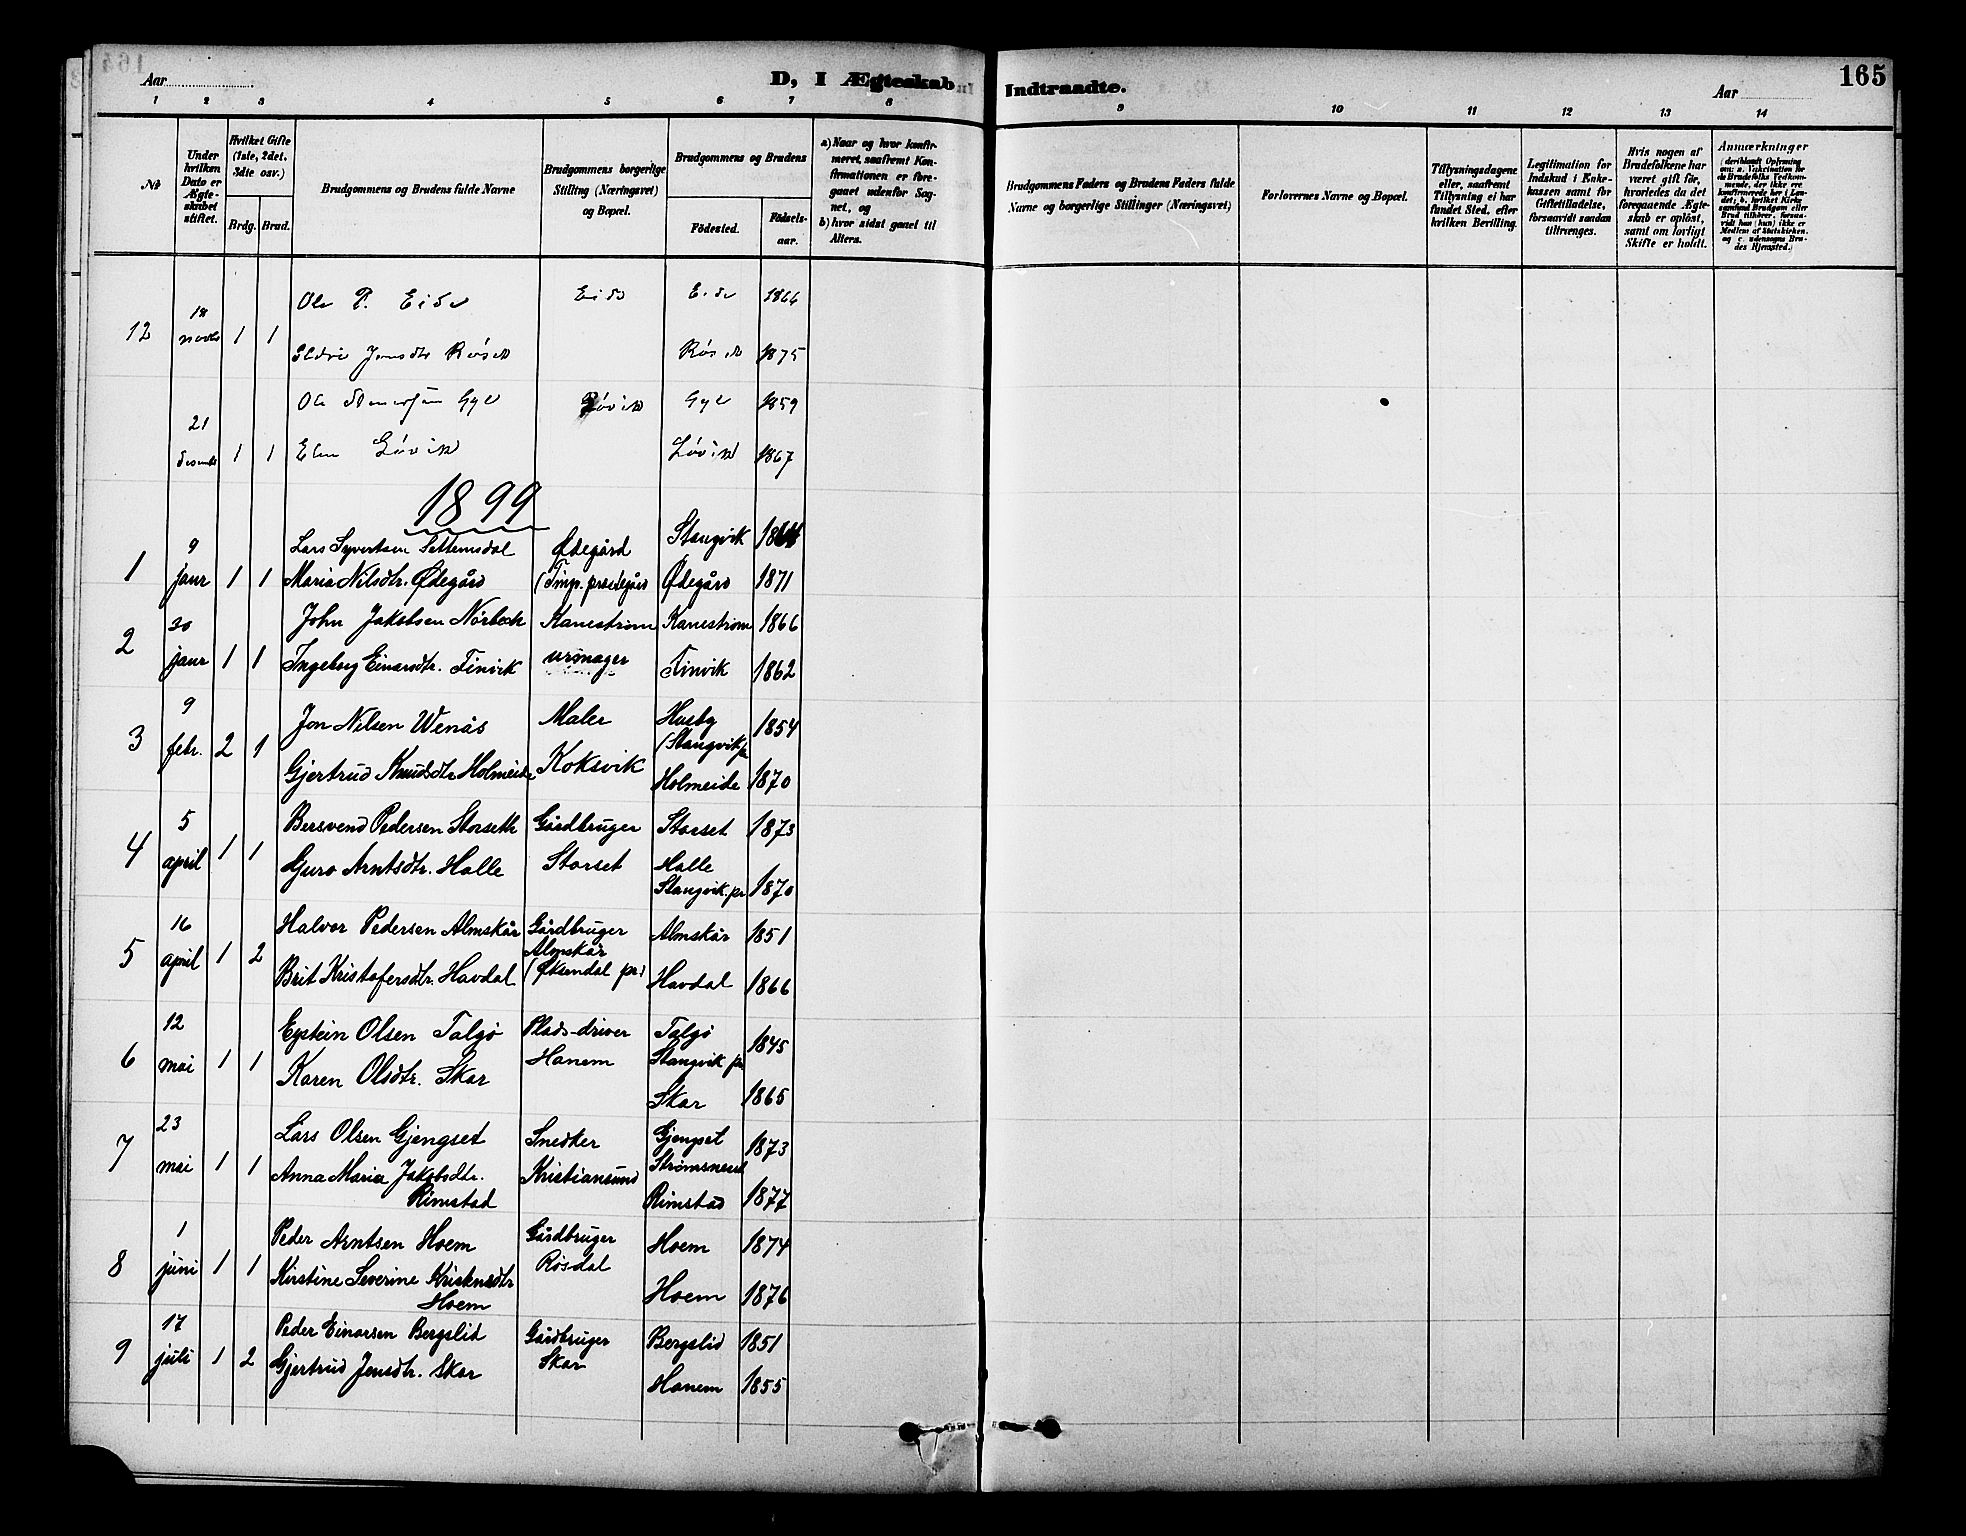 165
Aar
D, I Ægteskab Indtraadte.
Aar
1 2 3 4 5 6 7 8 9 10 11 12 13 14
No
Under hvilken Dato er Ægteskabet stiftet.
Hvilket Gifte (1ste, 2det, 3die osv.)
Brdg. Brud.
Brudgommens og Brudens fulde Navne
Brudgommens borgerlige Stilling (Næringsvei) og Bopæl.
Brudgommens og Brudens
Födested.
Födselsaar.
a) Naar og hvor konfirmeret, saafremt Konfirmationen er foregaaet udenfor Sognet, og
b) hvor sidst gaaet til Alters.
Brudgommens Faders og Brudens Faders fulde Navne og borgerlige Stillinger (Næringsvei)
Forlovernes Navne og Bopæl.
Tillysningsdagene eller, saafremt Tillysning ei har fundet Sted, efter hvilken Bevilling.
Legitimation for Indskud i Enkekassen samt for Giftetilladelse, forsaavidt saadan tiltrænges.
Hvis nogen af Brudefolkene har været gift för, hvorledes da det foregaaende Ægteskab er oplöst, samt om lovligt Skifte er holdt.
Anmærkninger
12 18 1 1 Ole P. Eide Eide Eide 1864
Jonsdtr 1875
21 Ole Gyl Løvik Gyl 1859
1 1 Løvik Løvik 1867
1899
9 Lars Syvertsen Settemsdal Ødegård Stangvik
1 janr 1 1 Maria Nilsdtr. Ødegård Ødegård 1871
30 John Jakobsen Nørbech Kanestrøm Kanestrøm 1866
2 janr 1 1 Ingeborg Einarsdtr. Finvik urmager Finvik 1862
9 Jon Nilsen Wenås Maler Husby (Stangvik pr 1854
3 febr. 2 1 Gjertrud Knudsdtr Holmeide Koksvik Holmeide 1870
5 Bersvend Pedersen Storseth Gårdbruger Storset 1873
4 april 1 1 Guro Arntsdtr. Halle Storset Halle Stangvik. pr 1870
16 Halvor Pedersen Almskår Gårdbruger Almskår 1851
5 april 1 2 Brit Kristofersdtr. Havdal Almskår (Øksendal pr.) Havdal 1866
12 Eystein Olsen Talgø Plads-driver Talgø Stangvik pr 1845
6 mai 1 1 Karen Olsdtr. Skar Hanem Skar 1865
23 Lars Olsen Gjengset Snedker Gjengset Strømsneset 1873
7 mai 1 1 Anna Maria Jakobsdtr. Kristiansund
Rimstad Rimstad 1877
1 Peder Arntsen Hoem Gårdbruger Hoem 1874
8 juni 1 1 Kirstine Severine Kristensdtr Røsdal
Hoem Hoem 1876
17 Peder Einarsen Bergslid Gårdbruger Bergslid 1851
9 juli 1 2 Gjertrud Jonsdtr. Skar Skar Hanem 1855